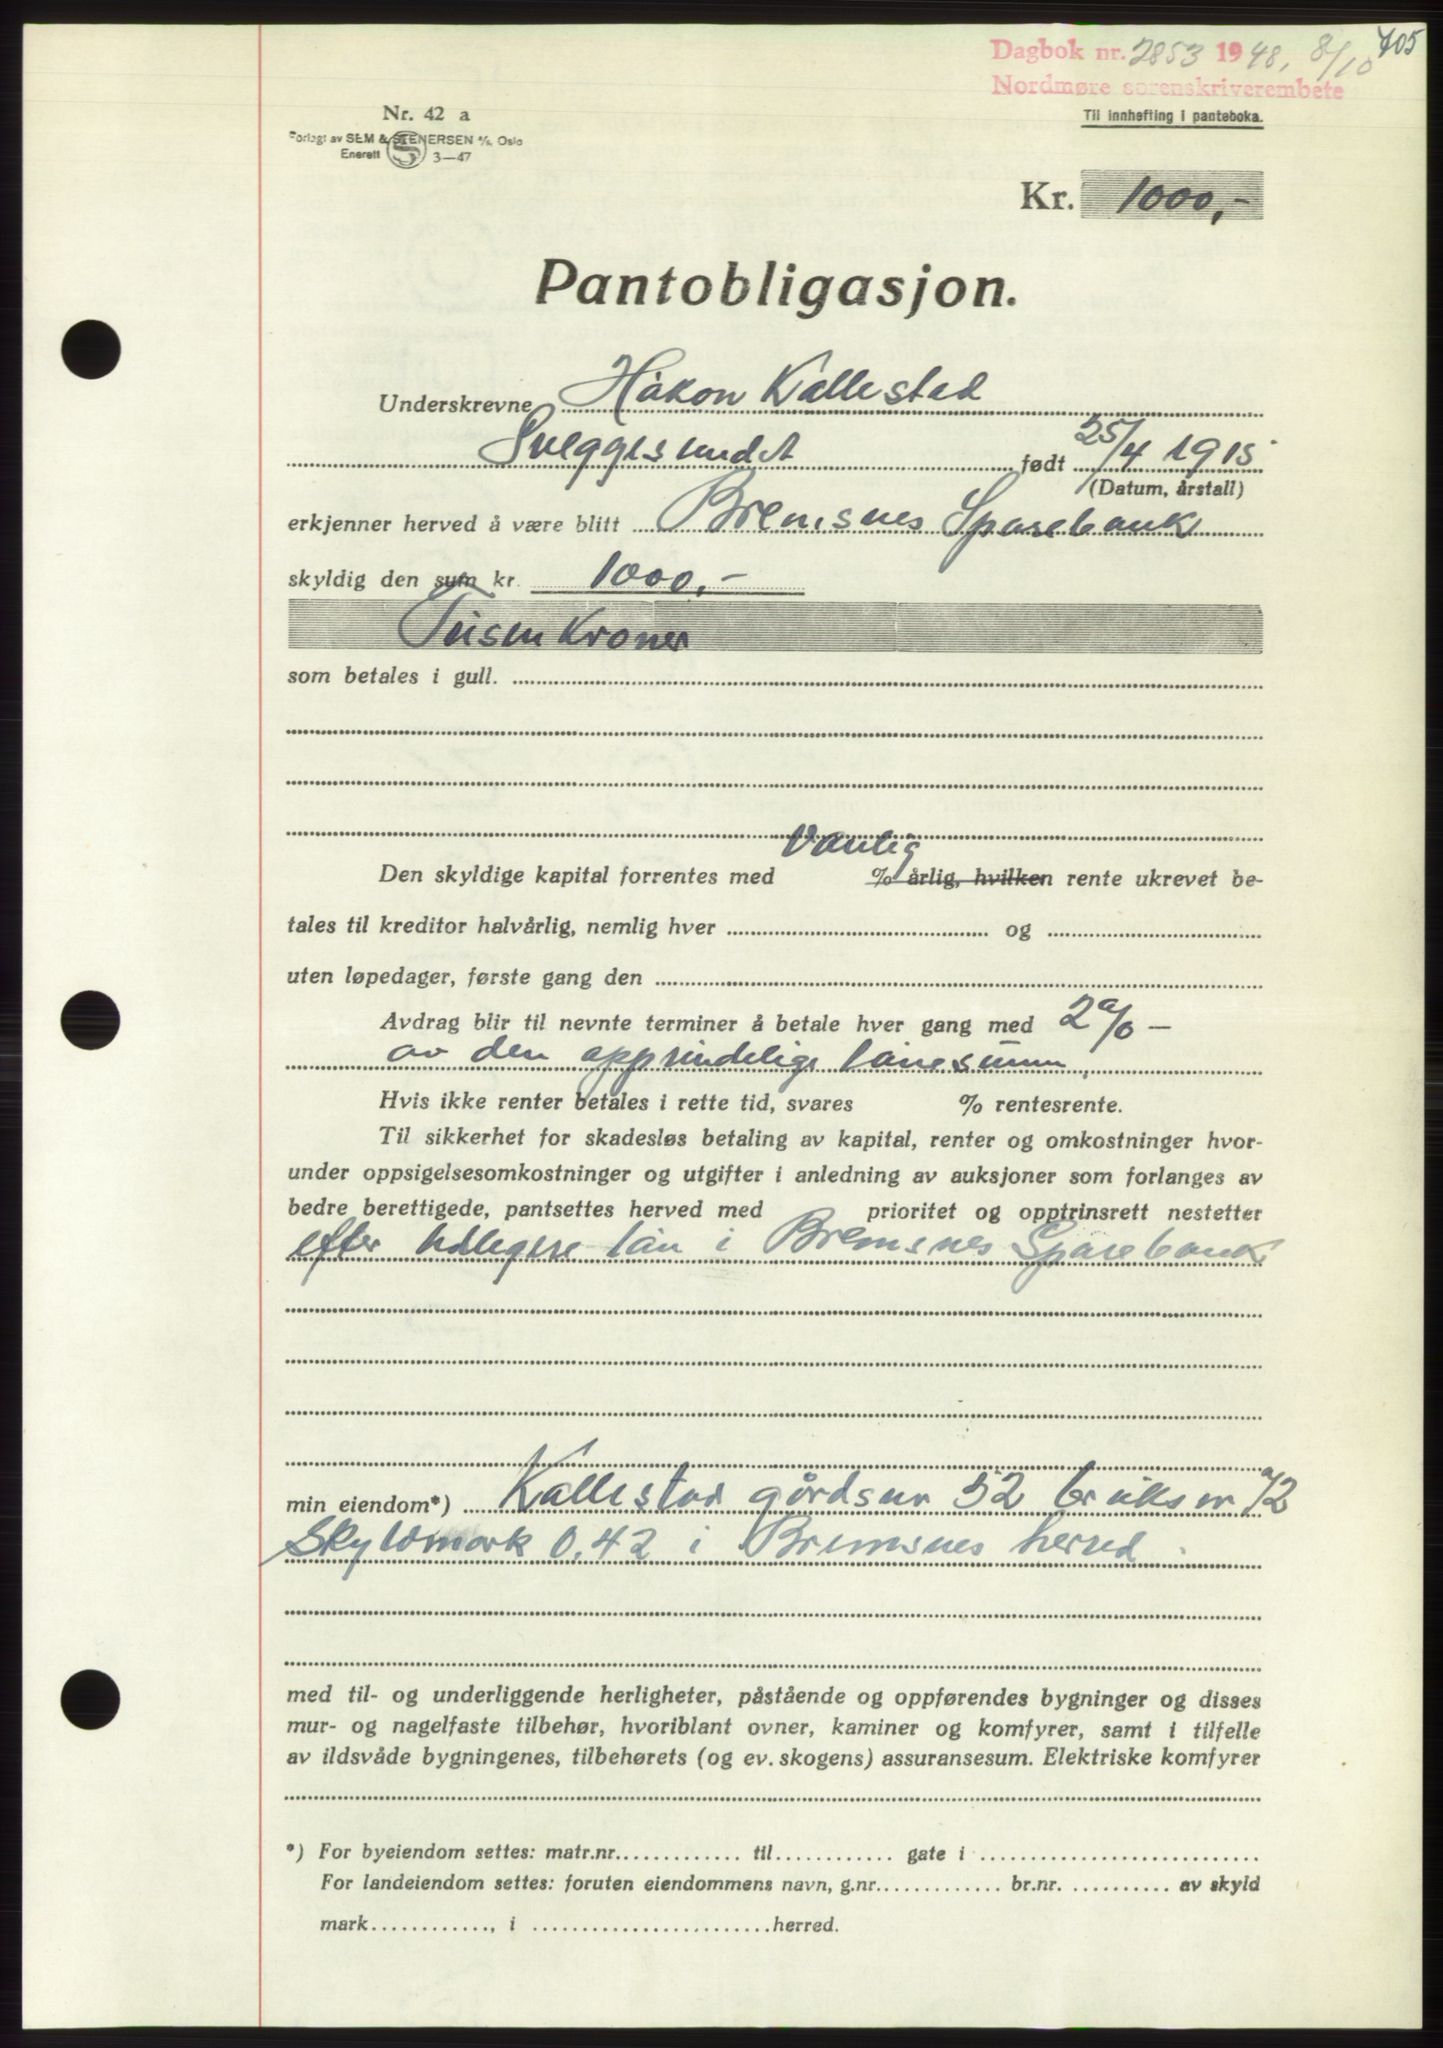 705
Dagbok nr. 2853 1948, 8/10
Nordmøre sorenskriverembete
Nr. 42 a
Til innhefting i panteboka.
Forlagt av SEM & STENERSEN A/S, Oslo
Enerett S 3—47
Kr. 1000,-
Pantobligasjon.
Underskrevne Håkon Kallestad
Sveggesundet født 25/4 1915
(Datum, årstall)
erkjenner herved å være blitt Bremsnes Sparebank
skyldig den sum kr. 1000,-
Tusen Kroner
som betales i gull.
Vanlig
Den skyldige kapital forrentes med % årlig, hvilken rente ukrevet be-
tales til kreditor halvårlig, nemlig hver og
uten løpedager, første gang den
Avdrag blir til nevnte terminer å betale hver gang med 2% —
av den opprindelige lånesum,
Hvis ikke renter betales i rette tid, svares % rentesrente.
Til sikkerhet for skadesløs betaling av kapital, renter og omkostninger hvor-
under oppsigelsesomkostninger og utgifter i anledning av auksjoner som forlanges av
bedre berettigede, pantsettes herved med prioritet og opptrinsrett nestetter
efter tidligere lån i Bremsnes Sparebank
min eiendom*) Kallestad gårdsnr 52 bruksnr 12
Skyldmark 0.42 i Bremsnes herred.
med til- og underliggende herligheter, påstående og oppførendes bygninger og disses
mur- og nagelfaste tilbehør, hvoriblant ovner, kaminer og komfyrer, samt i tilfelle
av ildsvåde bygningenes, tilbehørets (og ev. skogens) assuransesum. Elektriske komfyrer
*) For byeiendom settes: matr.nr. til gate i
For landeiendom settes: foruten eiendommens navn, g.nr. br.nr. av skyld
mark , i herred.